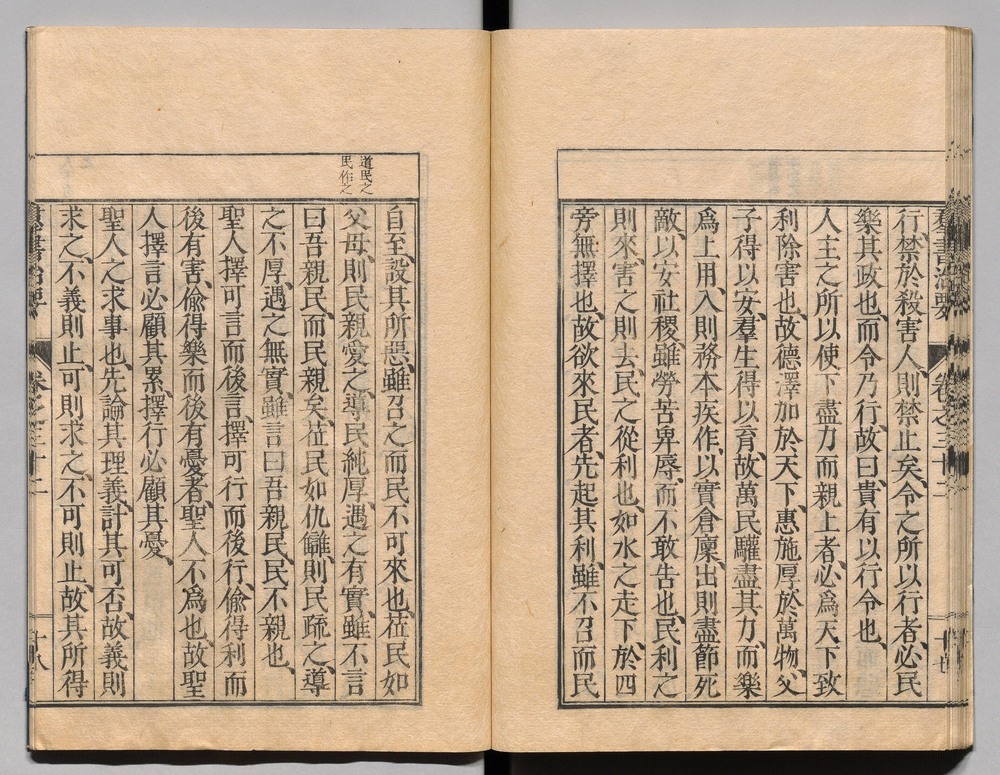 羣書治要 卷之三十二
行、禁於殺害人、則禁止矣、令之所以行者、必民
樂其政也、而令乃行、故曰、貴有以行令也、
人主之所以使下盡力而親上者、必爲天下致
利除害也、故德澤加於天下、惠施厚於萬物、父
子得以安、羣生得以育、故萬民驩盡其力、而樂
爲上用、入則務本疾作、以實倉廩、出則盡節死
敵、以安社稷、雖勞苦卑辱、而不敢告也、民利之
則來、害之則去、民之從利也、如水之走下、於四
旁無擇也、故欲來民者、先起其利、雖不召而民
道民之
民作之
自至、設其所惡、雖召之而民不可來也、莅民如
父母、則民親愛之、導民純厚、遇之有實、雖不言
曰吾親民、而民親矣、莅民如仇讎、則民疏之、導
之不厚、遇之無實、雖言曰吾親民、民不親也、
聖人擇可言而後言、擇可行而後行、偸得利而
後有害、偸得樂而後有憂者、聖人不爲也、故聖
人擇言必顧其累、擇行必顧其憂、
聖人之求事也、先論其理義、計其可否、故義則
求之、不義則止、可則求之、不可則止、故其所得
羣書治要 卷之三十二 十八